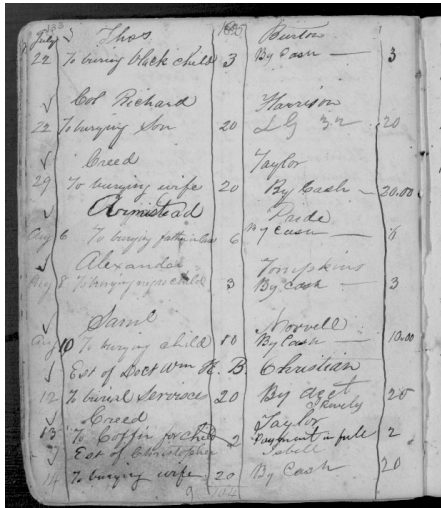 July Thos Burton
22 To buring black child 3 By Cash — 3
Col Richard Harrison
22 To burying son 20 20
Creed Taylor
29 To burying wife 20 By Cash — 20.00
Armistead Pride
Aug 6 To burying 6 By Cash — 6
Alexander Tompkins
Aug 8 To burying negro child 3 By Cash — 3
Saml Norvell
Aug 10 To burying child 10 By Cash — 10.00
Est of Doct Wm H. B. Christian
12 To burial Services 20 By acct 20
Creed Taylor
13 To Coffin for child 2 Payment in full 2
Est of Christopher Isbell
14 To burying wife 20 By Cash 20
104